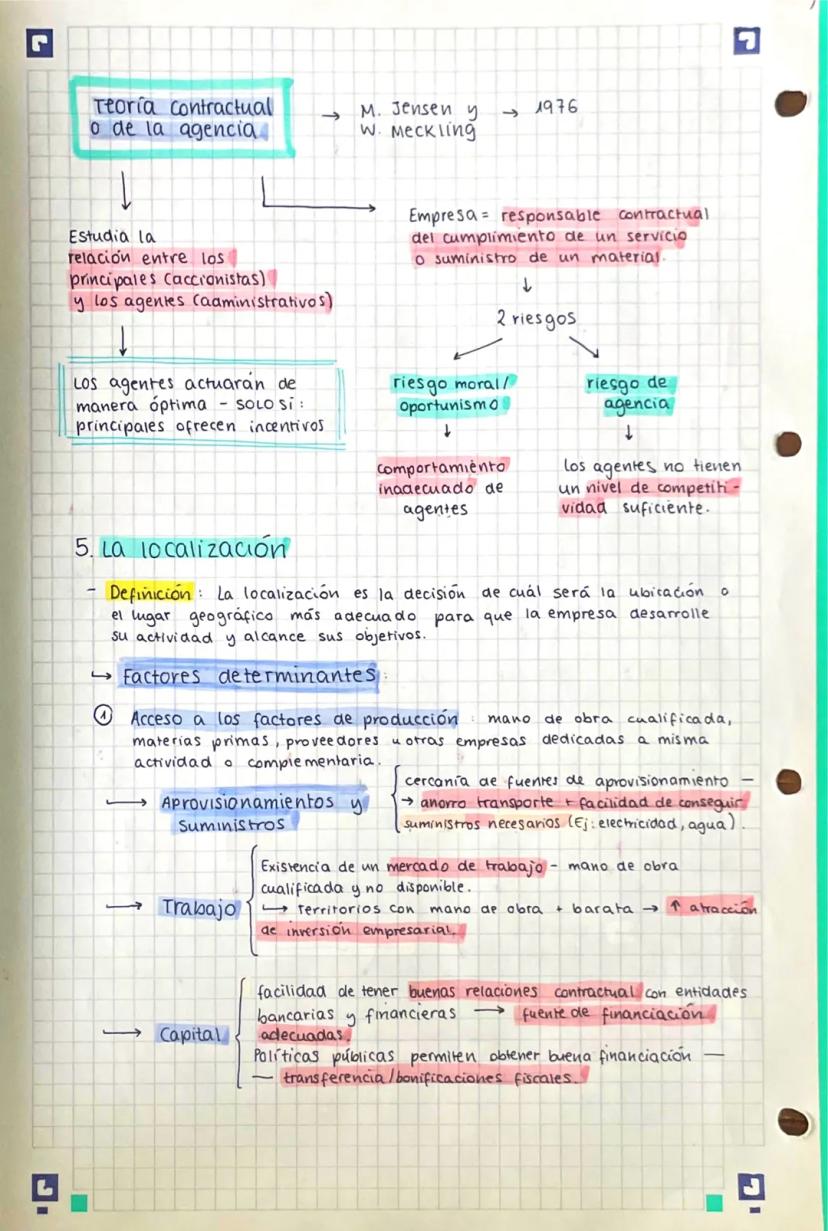 Teoría contractual
o de la agencia
→ M. Jensen y → 1976
W. Meckling
Estudia la
relación entre los
principales (accionistas)
y los agentes (administrativos)
Los agentes actuarán de
manera óptima - SOLO SI:
principales ofrecen incentivos
Empresa = responsable contractual
del cumplimiento de un servicio
o suministro de un material.
↓
2 riesgos
riesgo moral/
oportunismo
↓
comportamiento
inadecuado de
agentes
riesgo de
agencia
↓
los agentes no tienen
un nivel de competiti-
vidad suficiente.
5. La localización
- Definición: La localización es la decisión de cuál será la ubicación o
el lugar geográfico más adecuado para que la empresa desarrolle
su actividad y alcance sus objetivos.
↳ Factores determinantes:
① Acceso a los factores de producción: mano de obra cualificada,
materias primas, proveedores u otras empresas dedicadas a misma
actividad o complementaria.
→ Aprovisionamientos y
suministros
cercanía de fuentes de aprovisionamiento —
→ ahorro transporte + facilidad de conseguir
suministros necesarios (Ej: electricidad, agua).
→ Trabajo
Existencia de un mercado de trabajo - mano de obra
cualificada y no disponible.
↳ Territorios con mano de obra + barata → ↑ atracción
de inversión empresarial.
→ Capital
facilidad de tener buenas relaciones contractual con entidades
bancarias y financieras → fuente de financiación
adecuadas.
Políticas públicas permiten obtener buena financiación —
— transferencia/bonificaciones fiscales.